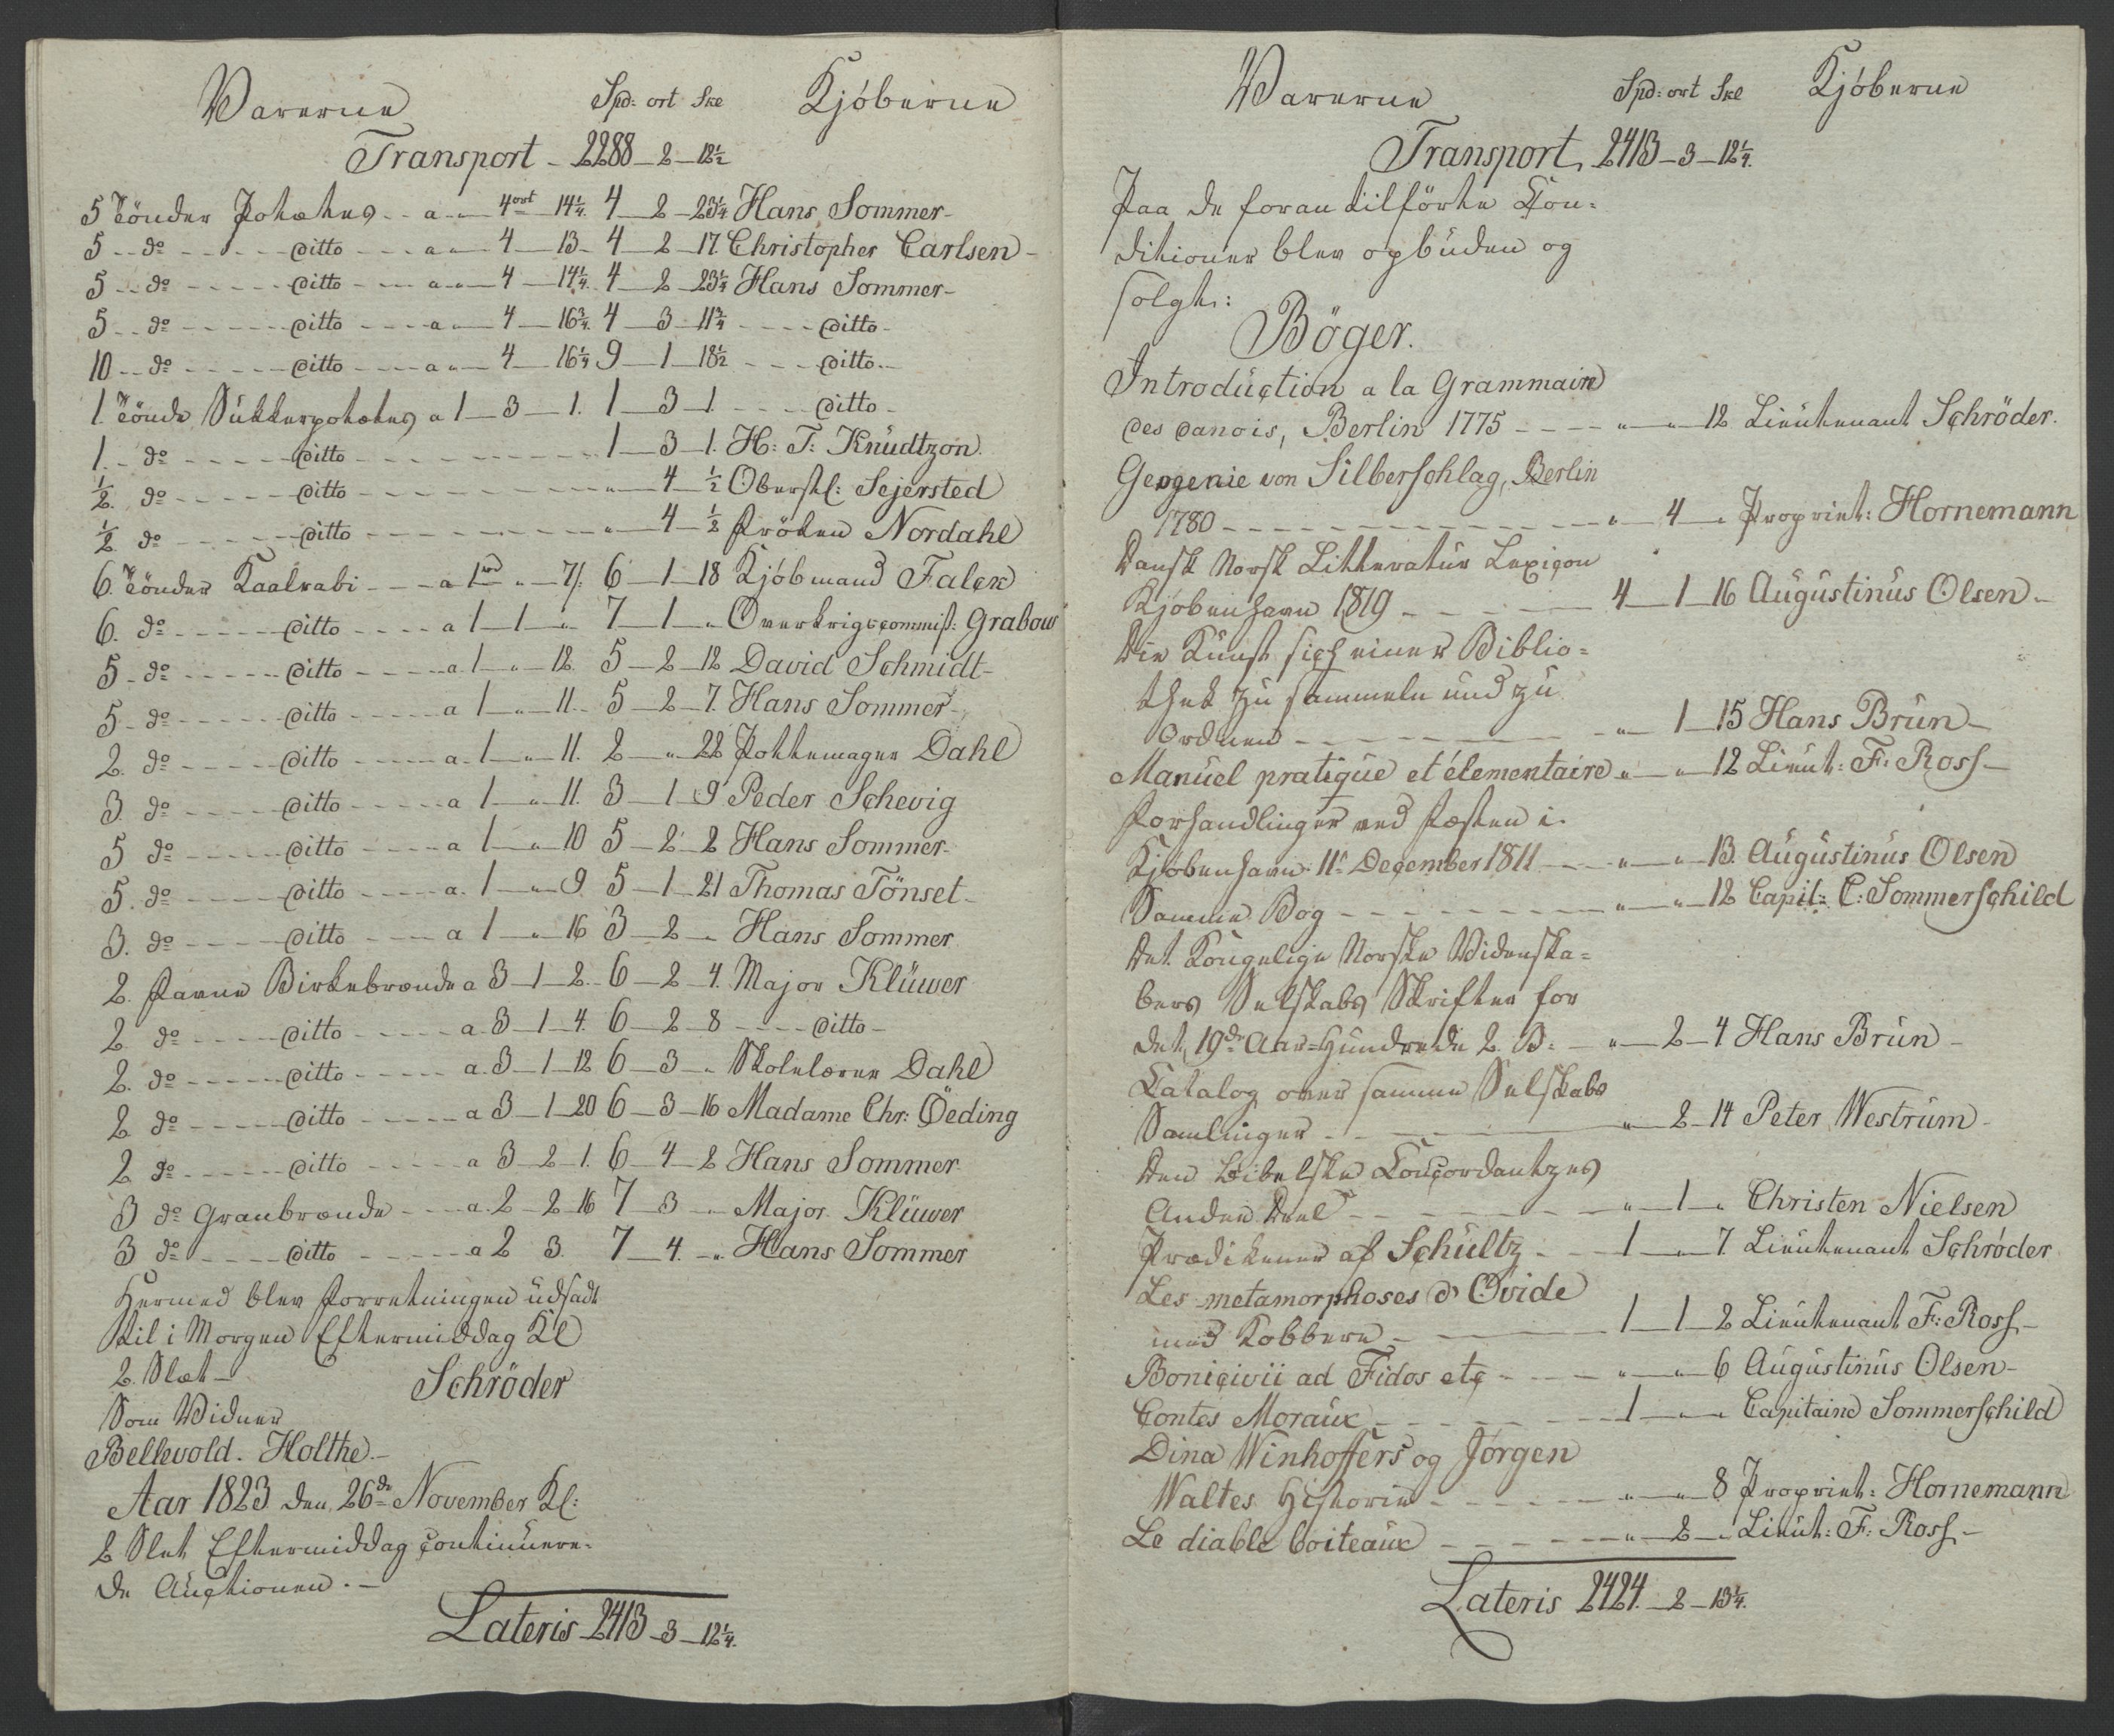 Varerne Spd: ort Ske Kjöberne
Transport - 2288 - 2 - 12½
5 Tönder Potates - - a - - 4ort 14¼. 4 - 2 - 23¼ Hans Sommer -
5 - - do - - - - - ditto - - - a - - 4 - 13 - 4 - 2 - 17 Christopher Carlsen -
5 - - do - - - - - ditto - - - a - - 4 - 14¼. 4 - 2 - 23¼ Hans Sommer -
5 - - do - - - - - ditto - - - a - - 4 - 16¾. 4 - 3 - 11¾ - - - - ditto -
10 - - do - - - - - ditto - - - a - - 4 - 16¼ 9 - 1 - 18½ - - - ditto -
1. Tönde Sukkerpotates a 1 - 3 - 1. 1 - 3 - 1. - - - - ditto -
1. - do - - - - - ditto - - - - - - - 1 - 3 - 1. H: T: Knudtzon.
½. do - - - - - ditto - - - - - - - " - 4 - ½ Oberstl: Sejersted
½. do - - - - - ditto - - - - - - - " - 4 - ½ Fröken Nordahl
6. Tönder Kaalrabi - - - a 1 " - 7 /: 6 - 1 - 18 Kjöbmand Falck
6. do - - - - - ditto - - - - a 1 - 1 - " 7 - 1 - " Overkrigscommiss: Grabow
5 - do - - - - - ditto - - - - a 1 - " - 12. 5 - 2 - 12 David Schmidt -
5 - do - - - - - ditto - - - - a 1 - " - 11. - 5 - 2 - 7. Hans Sommer -
2. do - - - - - ditto - - - - a. 1 - " - 11. 2 - " - 22 Pottemager Dahl
3. do - - - - - ditto - - - - a 1 - " - 11. 3 - 1 - 9 Peder Schevig
5 do - - - - - ditto - - - - a 1 - " - 10 5 - 2 - 2 Hans Sommer -
5. do - - - - - ditto - - - - a. 1 - " - 9 5 - 1 - 21 Thomas Tönset -
3. do - - - - - ditto - - - - a 1 - " 16 3 - 2 - " Hans Sommer
2. Favne Birkebrænde a 3 - 1 - 2. - 6 - 2 - 4. Major Klüwer
2 do - - - - - ditto - - - - a. 3 - 1 - 4. 6 - 2 - 8 - - - - ditto -
2. do - - - - - ditto - - - - a. 3 - 1 - 12 6 - 3 - " Skolelærer Dahl
2. do - - - - - ditto - - - - a 3 - 1 - 20 6 - 3 - 16 Madame Chr: Öeding
2 do - - - - - ditto - - - - a 3 - 2 - 1. 6 - 4 - 2 Hans Sommer
3 do Granbrænde - - - a. 2 - 2 - 16 7 - 3 - " Major Klüwer
3 do - - - - ditto - - - - - a 2 3. 7 - 4. - " Hans Sommer
Hermed blev Forretningen udsadt
til i Morgen Eftermiddag Kl
2. Slæt -
Schröder
Som Vidner
Bellevold. Holthe. -
Aar 1823 den 26de November Kl:
2 Slet Eftermiddag continuere-
de Auctionen. -
Lateris 2413 - 3 - 12¼.
Varerne Spd: ort Ske Kjöberne
Transport, 2413 - 3 - 12¼.
Paa de foran tilförte Con-
ditioner blev opbuden og
solgt:
Böger.
Introduction a la Grammaire
des danois, Berlin 1775 - - - - " - " - 12 Lieutenant Schröder.
Geogenie von Silberschlag, Berlin
1780 - - - - - - - - - - " - 4 - " Propriet: Hornemann
Dansk Norsk Litteratur Lexicon
Kjöbenhavn 1819 - - - - - 4 - 1 - 16 Augustinus Olsen -
Die Kunst sich einer Biblio-
thek zu sammeln und zu
Ordnen - - - - - - - - - " - 1 - 15 Hans Brun -
Manuel pratique et élementaire " - " - 12 Lieut: F: Ross -
Forhandlinger ved Festen i
Kjöbenhavn 11te December 1811 - - " - " - 13. Augustinus Olsen
Samme Bog - - - - - - - - " - " - 12 Capit: C: Sommerschild
Det Kongelige Norske Videnska-
bers Selskabs Skrifter for
det 19de Aar-Hundrede 2. B: - " - 2 - 4 Hans Brun -
Catalog over samme Selskabs
Samlinger - - - - - - - - " - 2 - 14 Peter Westrum -
Den bibelske Concordantzes
Anden Deel - - - - - - - - " - 1 - " Christen Nielsen
Prædikener af Schultz - - - 1 - " - 7 Lieutenant Schröder
Les metamorphoses d'Ovide
med Kobbere - - - - - - - - 1 - 1 - 2 Lieutenant F: Ross -
Bonicivii ad Fidos etc - - - - " - " - 6 Augustinus Olsen -
Contes Moraux - - - - - - - 1 - " - " Capitaine Sommerschild
Dina Winhoffers og Jörgen
Waltes Historie - - - - - - - " - " - 8 Propriet: Hornemann
Le diable boiteaux - - - - - - " - 2 - " Lieut: F: Ross -
Lateris 2424. - 2 - 13¼.